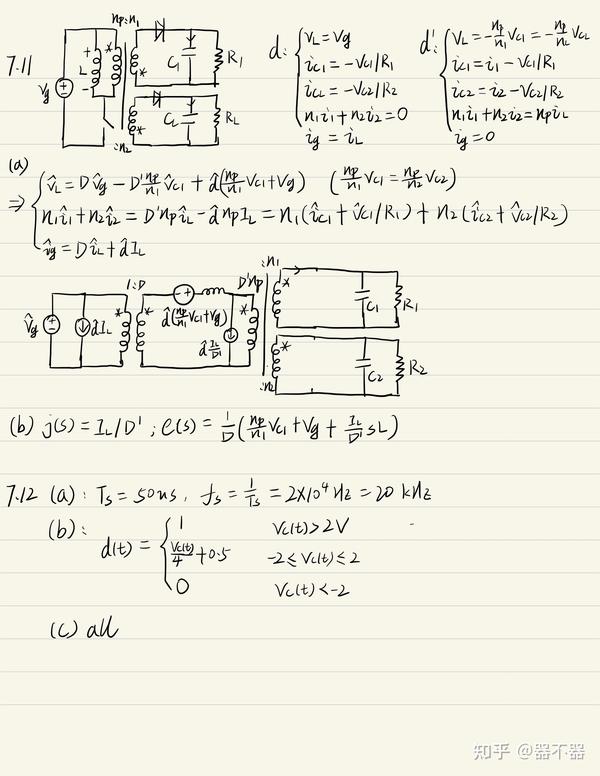 7.11
np:n1
C1
R1
L
Vg
CL
RL
:n2
d: { vL = Vg
iC1 = -VC1/R1
iCL = -VC2/R2
n1i1 + n2i2 = 0
ig = iL
d': { vL = -np/n1 VC1 = -np/nL VCL
iC1 = i1 - VC1/R1
iC2 = i2 - VC2/R2
n1i1 + n2i2 = npiL
ig = 0
(a)
⇒ { v̂L = Dv̂g - D'np/n1 v̂C1 + d̂(np/n1 VC1 + Vg) (np/n1 VC1 = np/n2 VC2)
n1î1 + n2î2 = D'npîL - d̂npIL = n1(îC1 + v̂C1/R1) + n2(îC2 + v̂C2/R2)
îg = DîL + d̂IL
:n1
1:D
D'np
C1
R1
v̂g
d̂IL
d̂(np/n1 VC1 + Vg)
d̂ IL/D'
C2
R2
:n2
(b) j(s) = IL/D' ; e(s) = 1/D (np/n1 VC1 + Vg + IL/D' sL)
7.12 (a): Ts = 50us, fs = 1/Ts = 2×10⁴ Hz = 20 kHz
(b):
d(t) = { 1 Vc(t)>2V
Vc(t)/4 + 0.5 -2 ≤ Vc(t) ≤ 2
0 Vc(t)<-2
(c) all
知乎 @器不器